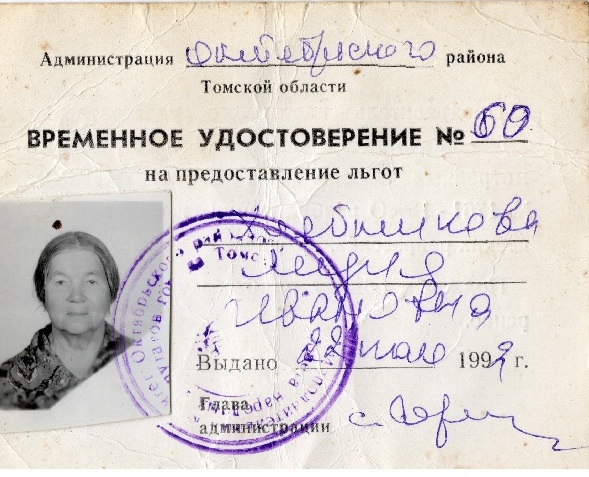 Администрация Октябрьского района
Томской области
ВРЕМЕННОЕ УДОСТОВЕРЕНИЕ № 60
на предоставление льгот
Хлебникова
Лидия
Ивановна
Выдано мая 199 г.
Глава
администрации